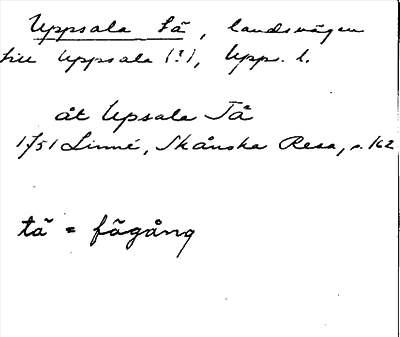 Uppsala tå, landsvägen
till Uppsala (?), Upp. l.
åt Upsala Tå
1751 Linné, Skånska Resa, s. 162
tå = fägång